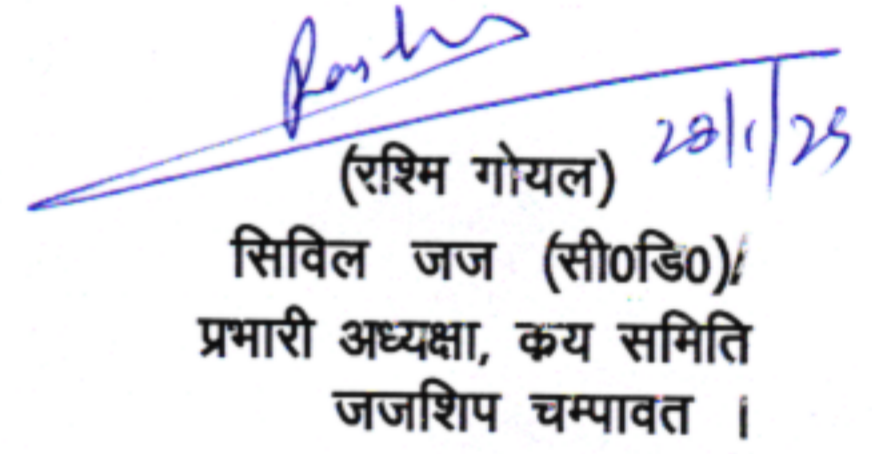 28/1/25
(रश्मि गोयल)
सिविल जज (सी0डि0)/
प्रभारी अध्यक्षा, क्रय समिति
जजशिप चम्पावत ।